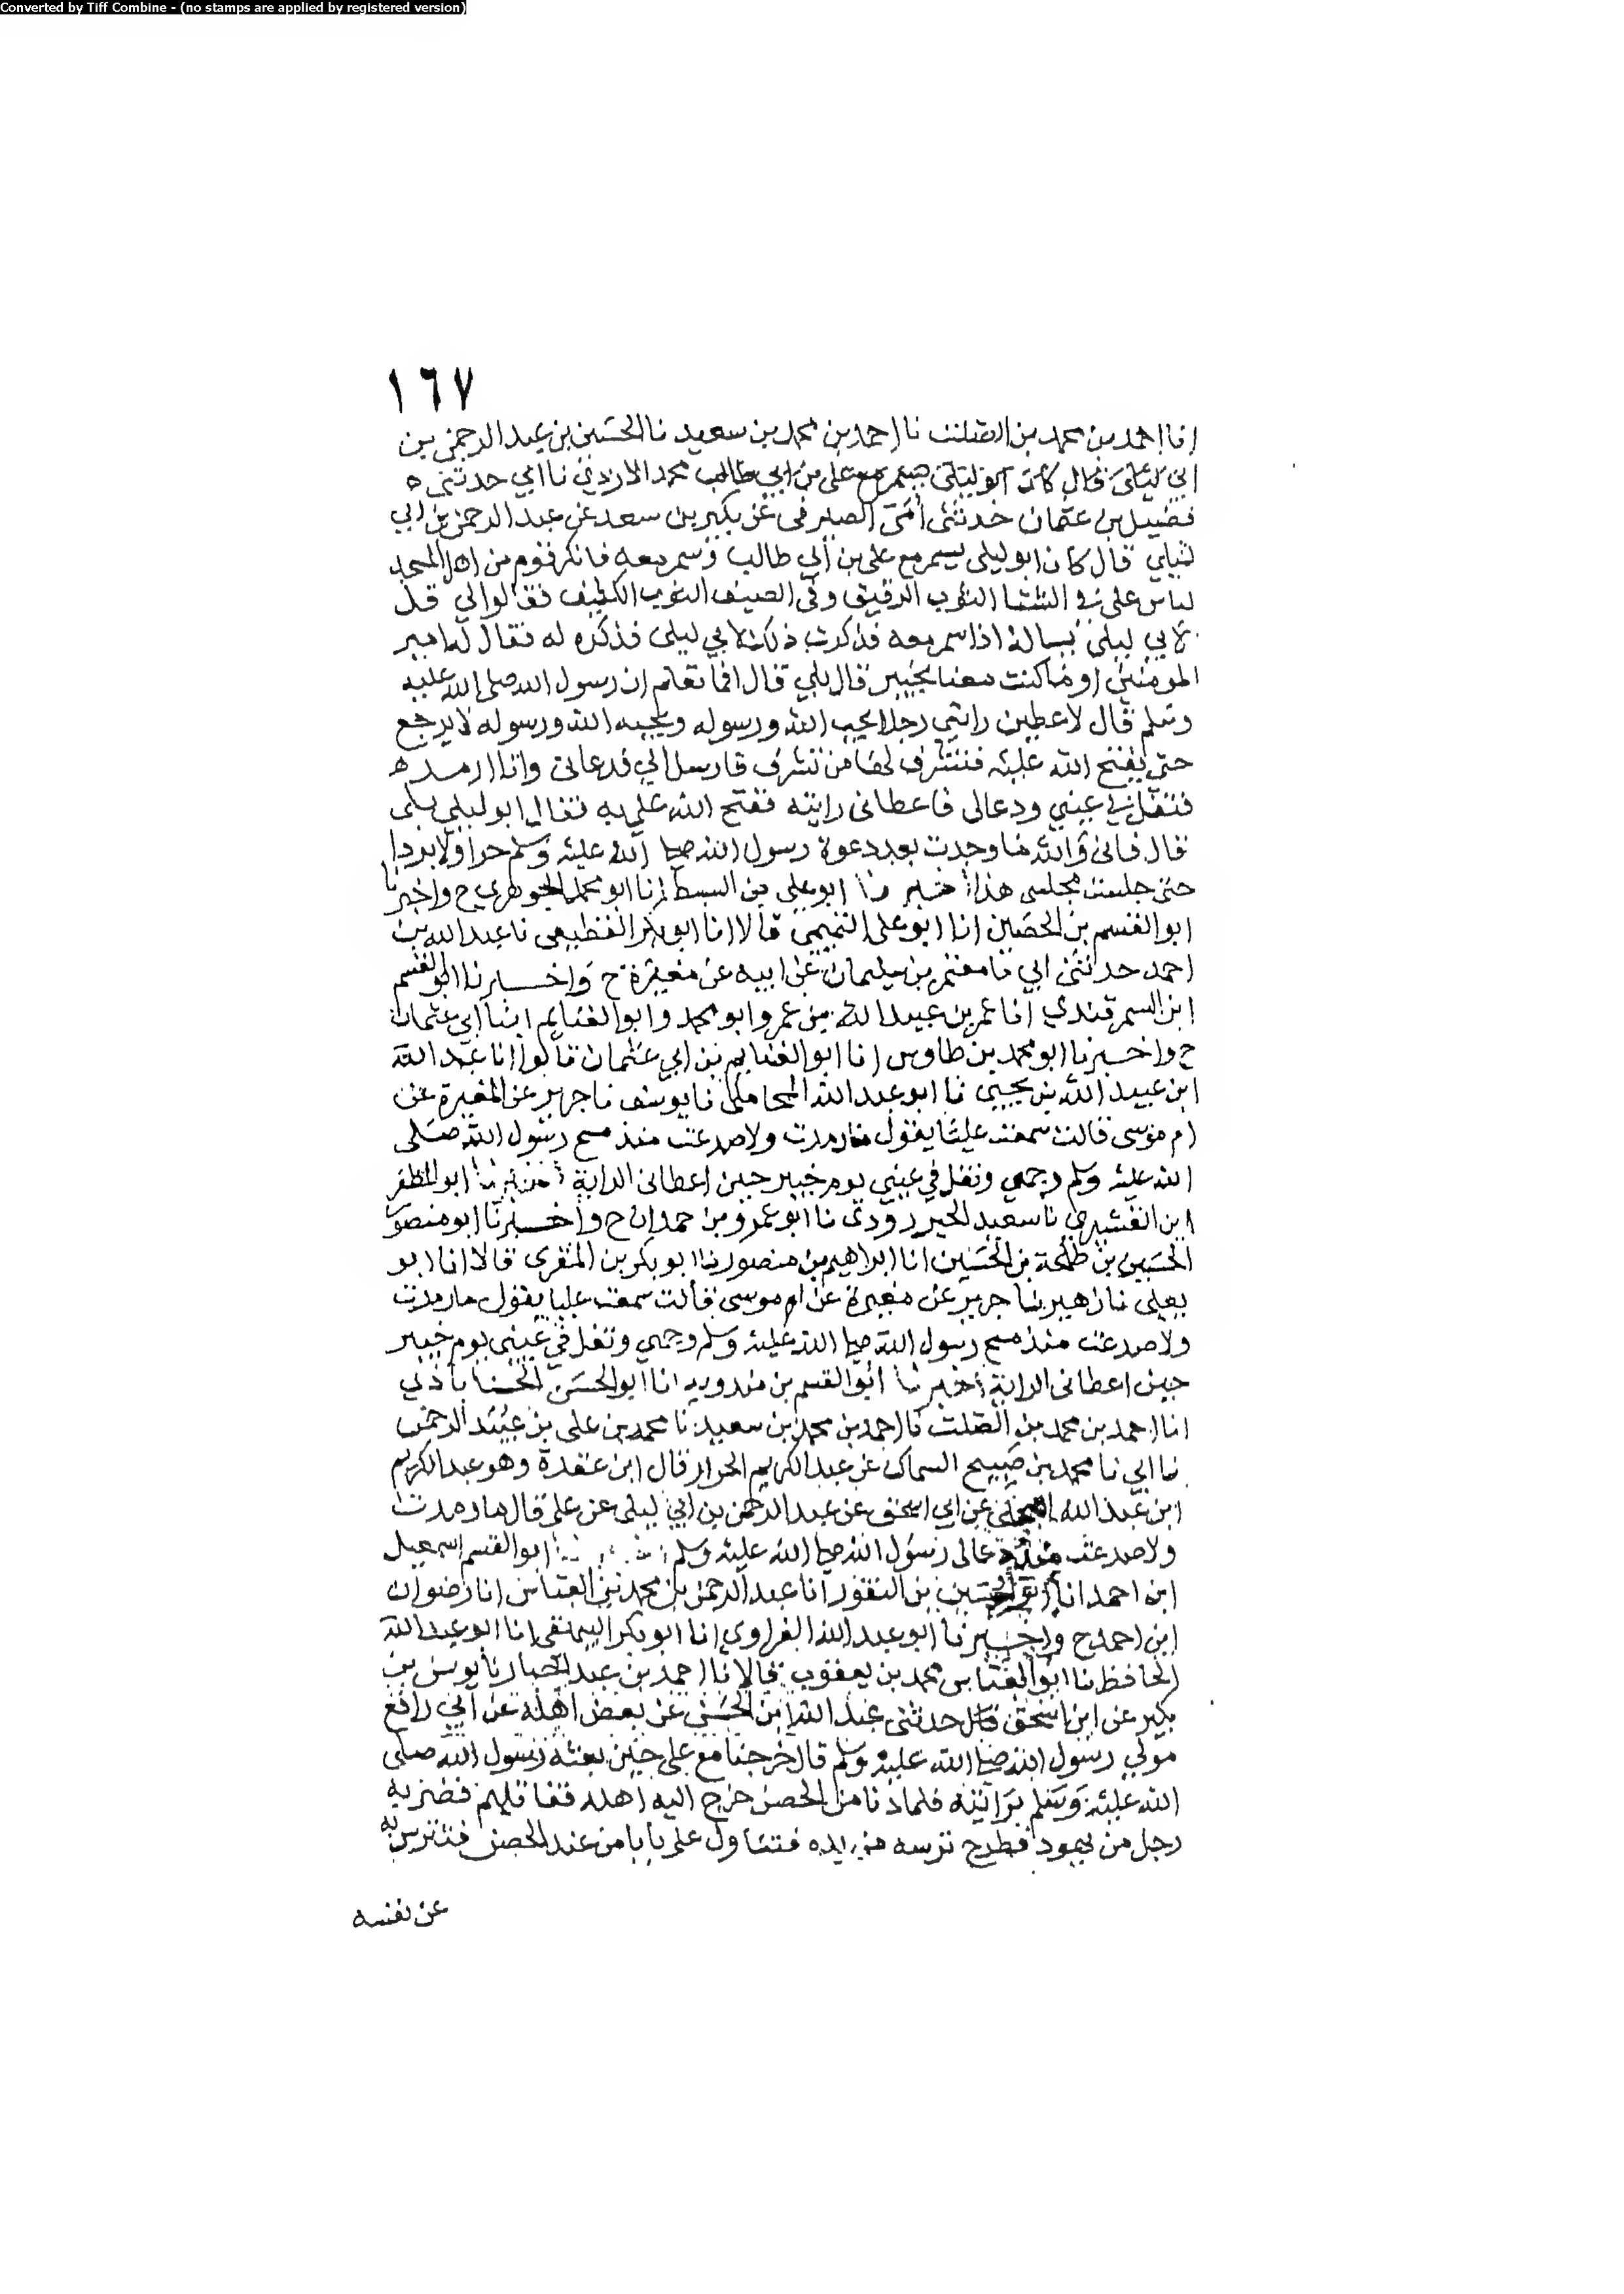 Converted by Tiff Combine - (no stamps are applied by registered version)
١٦٧
انا احمد بن محمد بن الصلت نا احمد بن محمد بن سعيد نا الحسين بن عبد الرحمن بن
ابي ليلى قال كان ابو ليلى يسمر مع علي بن ابي طالب محمد الازدي نا ابي حدثني ه
فضيل بن عثمان حدثني أمي الصيرفي عن بكير بن سعد عن عبد الرحمن بن ابي
ليلى قال كان ابو ليلى يسمر مع علي بن ابي طالب وسمر معه فانكر قوم من اهل المسجد
لباس علي في الشتا الثوب الرقيق وفي الصيف الثوب الكثيف فقالوا لي قل
لابي ليلى يساله اذا سمر معه فذكرت ذلك لابي ليلى فذكره له فقال له امير
المومنين او ما كنت معنا بخيبر قال بلي قال افما تعلم ان رسول الله صلى الله عليه
وسلم قال لاعطين رايتي رجلا يحب الله ورسوله ويحبه الله ورسوله لا يرجع
حتى يفتح الله عليه فتشرف لها من تشرف فارسل الي فدعاني وانا ارمد ه
فتفل في عيني ودعا لي فاعطاني رايته ففتح الله عليه فقال ابو ليلي بلى
قال فاني والله ما وجدت بعد دعوة رسول الله صلى الله عليه وسلم حرا ولا بردا
حتى جلست مجلسي هذا اخبرنا ابو علي بن السبط انا ابو محمد الجوهري ح واخبرنا
ابو القسم بن الحصين انا ابو علي التميمي قالا انا ابو بكر القطيعي نا عبد الله بن
احمد حدثني ابي نا معتمر بن سليمان عن ابيه عن مغيرة ح واخبرنا ابو القسم
ابن السمرقندي انا عمر بن عبيد الله بن عمر وابو محمد وابو الغنايم ابنا ابي عثمان
ح واخبرنا ابو محمد بن طاوس انا ابو الغنايم بن ابي عثمان قالوا انا عبد الله
ابن عبيد الله بن يحيي نا ابو عبد الله المحاملي نا يوسف نا جرير عن المغيرة عن
ام موسى قالت سمعت عليا يقول ما رمدت ولا صدعت منذ مسح رسول الله صلى
الله عليه وسلم وجهي وتفل في عيني يوم خيبر حين اعطاني الراية اخبرنا ابو المظفر
ابن القشيري نا سعيد الحيرذودي نا ابو عمرو بن حمدان ح واخبرنا ابو منصور
الحسين بن طلحة بن الحسين انا ابراهيم بن منصور نا ابو بكر بن المقري قالا انا ابو
يعلى نا زهير نا جرير عن مغيرة عن ام موسى قالت سمعت عليا يقول ما رمدت
ولا صدعت منذ مسح رسول الله صلى الله عليه وسلم وجهي وتفل في عيني يوم خيبر
حين اعطاني الراية اخبرنا ابو القسم بن مندويه انا ابو الحسن الحسناباذي
انا احمد بن محمد بن الصلت نا احمد بن محمد بن سعيد نا محمد بن علي بن عبيد الرحمن
نا ابي نا محمد بن صبيح السماك عن عبد الكريم الحراز قال ابن عقدة وهو عبد الكريم
ابن عبد الله عن ابي اسحق عن عبد الرحمن بن ابي ليلى عن علي قال ما رمدت
ولا صدعت منذ دعا لي رسول الله صلى الله عليه وسلم ابو القسم اسمعيل
ابن احمد انا ابو الحسين بن النقور انا عبد الرحمن بن محمد بن العباس انا رضوان
ابن احمد ح واخبرنا ابو عبد الله الفراوي انا ابو بكر البيهقي انا ابو عبد الله
الحافظ نا ابو العباس محمد بن يعقوب قالا نا احمد بن عبد الجبار نا يونس بن
بكير عن ابن اسحق قال حدثني عبد الله بن الحسن عن بعض اهله عن ابي رافع
مولي رسول الله صلى الله عليه وسلم قال خرجنا مع علي حين بعثه رسول الله صلى
الله عليه وسلم برايته فلما دنا من الحصن خرج اليه اهله فقاتلهم فضربه
رجل من يهود فطرح ترسه من يده فتناول علي بابا من عند الحصن فتترس به
عن نفسه